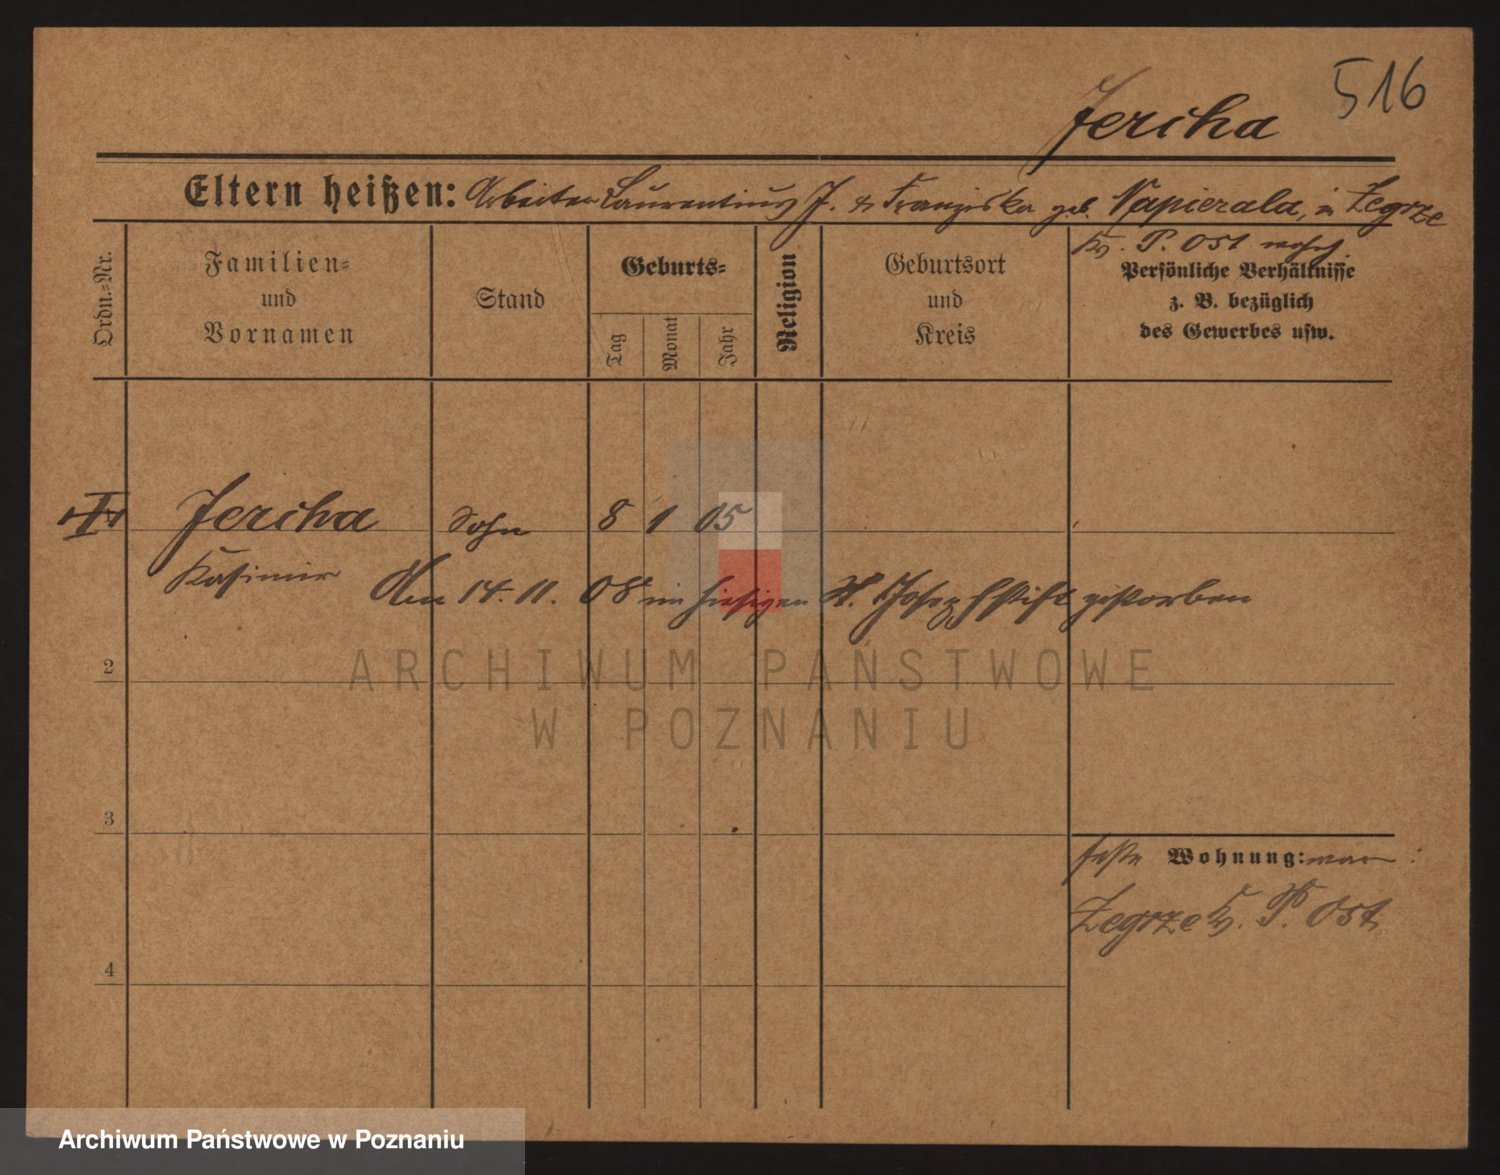 516
Jericha
Eltern heißen: Arbeiter Laurentius J. & Franziska geb. Napierala, in Zegrze
Kr. P. Ost wohnh.
Ordn.-Nr.
Familien-
und
Vornamen
Stand
Geburts-
Tag
Monat
Jahr
Religion
Geburtsort
und
Kreis
Persönliche Verhältnisse
z. B. bezüglich
des Gewerbes usw.
Jericha Sohn 8 1 05
Kasimir
Am 14. 11. 08 im hiesigen St. Josephstift gestorben
ARCHIWUM PAŃSTWOWE
W POZNANIU
2
3
feste Wohnung: war
Zegrze Kr. P. Ost
4
Archiwum Państwowe w Poznaniu